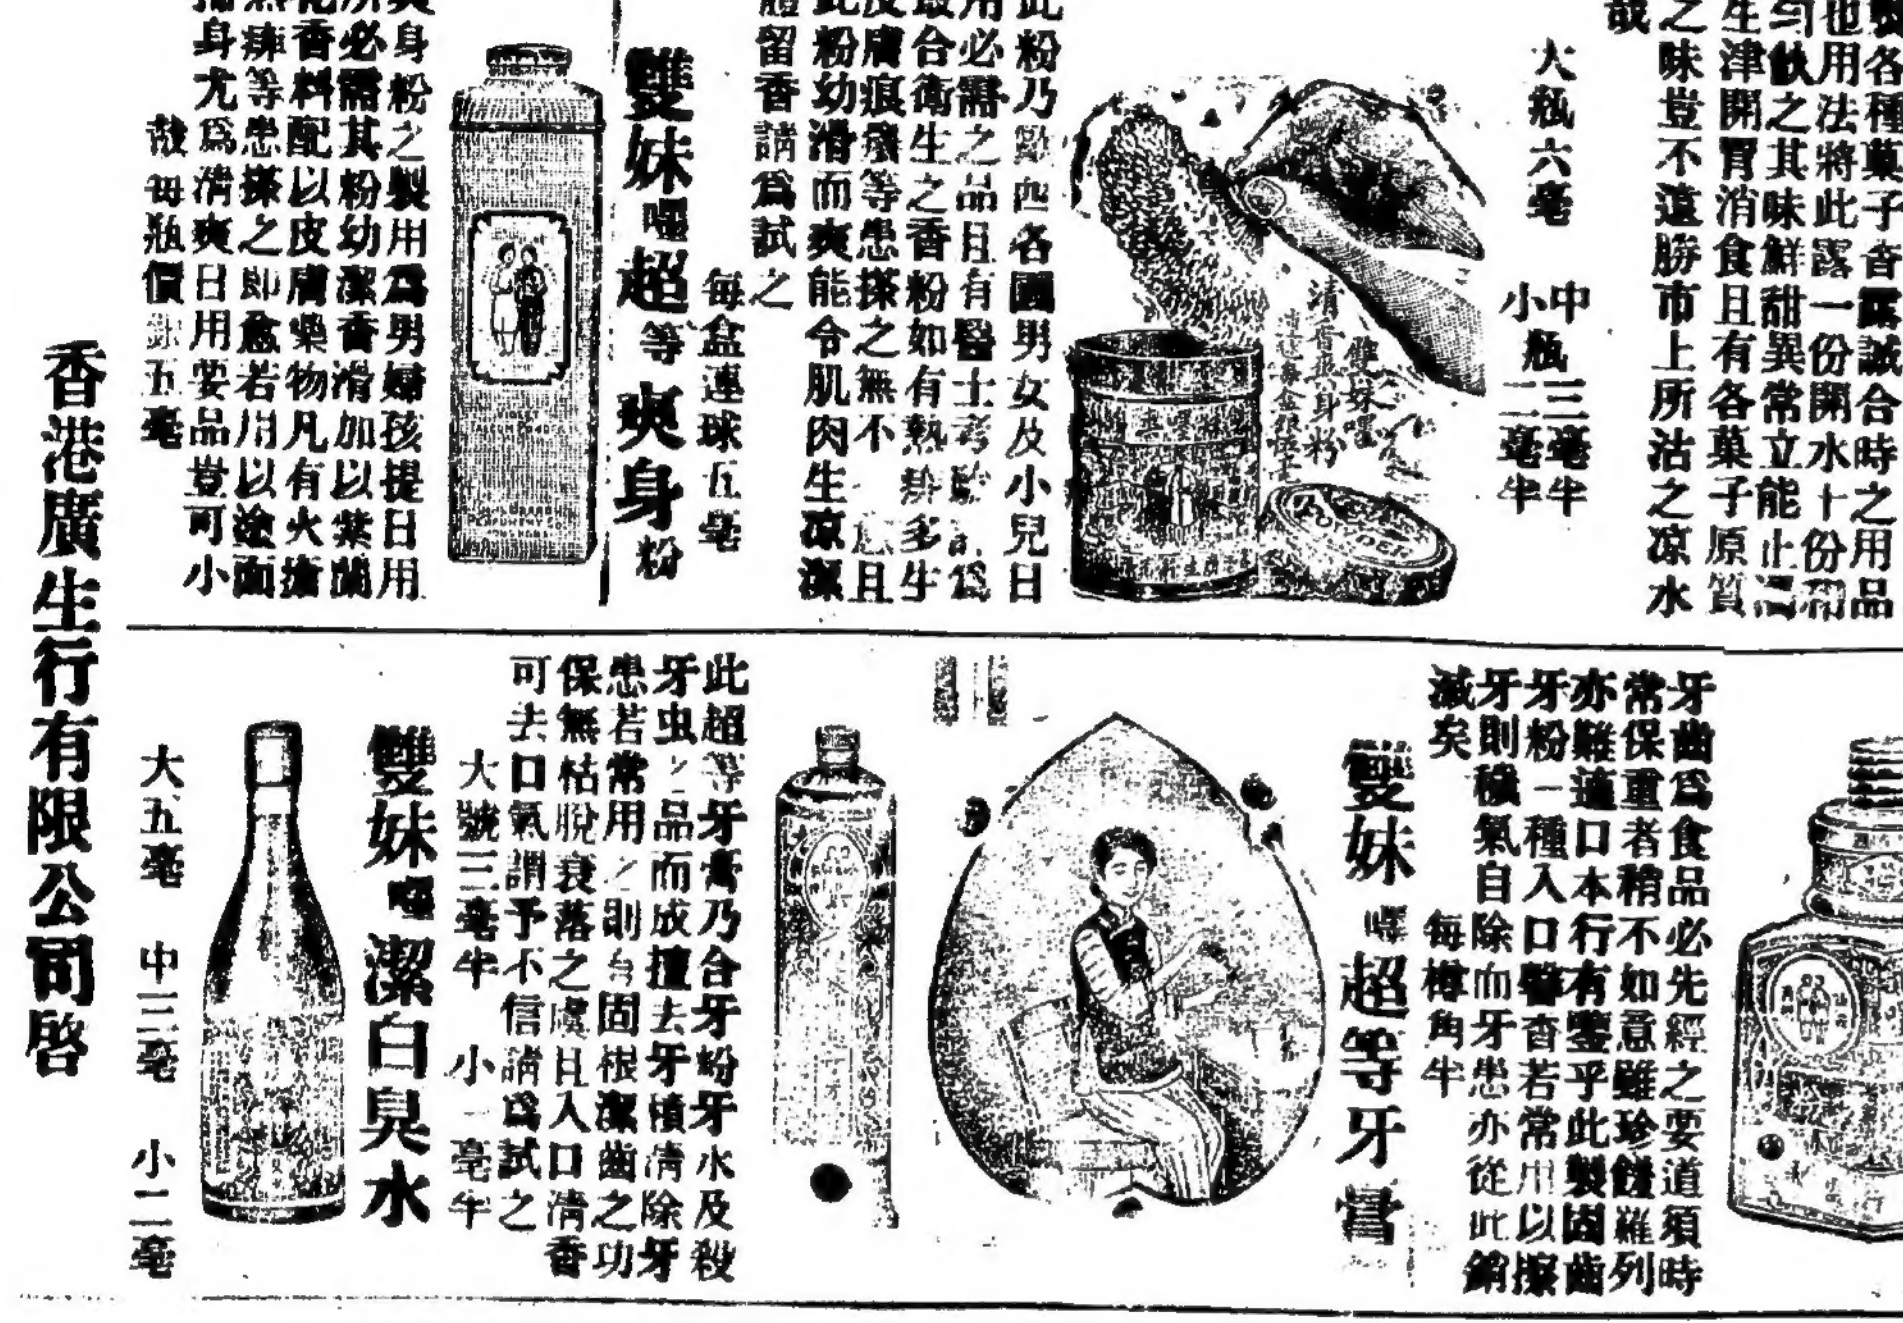 各種菓子香露誠合時之用品
也用法將此露一份開水十份和
勻飲之其味鮮甜異常立能止渴
生津開胃消食且有各菓子原質
之味豈不遠勝市上所沽之凉水
哉
大瓶六毫 中瓶三毫半
小瓶二毫半
雙妹嘜
清香爽身粉
此粉乃 西各國男女及小兒日
用必需之品且有醫士考 為
最合衛生之香粉如有熱痱多生
皮膚痕癢等患搽之無不 意且
此粉幼滑而爽能令肌肉生凉潔
體留香請為試之
每盒連球五毫
雙妹嘜超等爽身粉
爽身粉之製用為男婦孩提日用
所必需其粉幼潔香滑加以紫蘭
花香料配以皮膚藥物凡有火瘡
熱痱等患搽之即愈若用以塗面
搽身尤為清爽日用要品豈可小
哉每瓶價銀五毫
牙齒為食品必先經之要道須時
常保重者稍不如意雖珍饈羅列
亦難適口本行有鑒乎此製固齒
牙粉一種入口馨香若常用以擦
牙則穢氣自除而牙患亦從此銷
滅矣
每樽角半
雙妹嘜超等牙膏
此超等牙膏乃合牙粉牙水及殺
牙虫之品而成擅去牙積清除牙
患若常用之則有固根潔齒之功
保無枯脫衰落之虞且入口清香
可去口氣謂予不信請為試之
大號三毫半 小一毫半
雙妹嘜潔白臭水
大五毫 中三毫 小二毫
香港廣生行有限公司啓